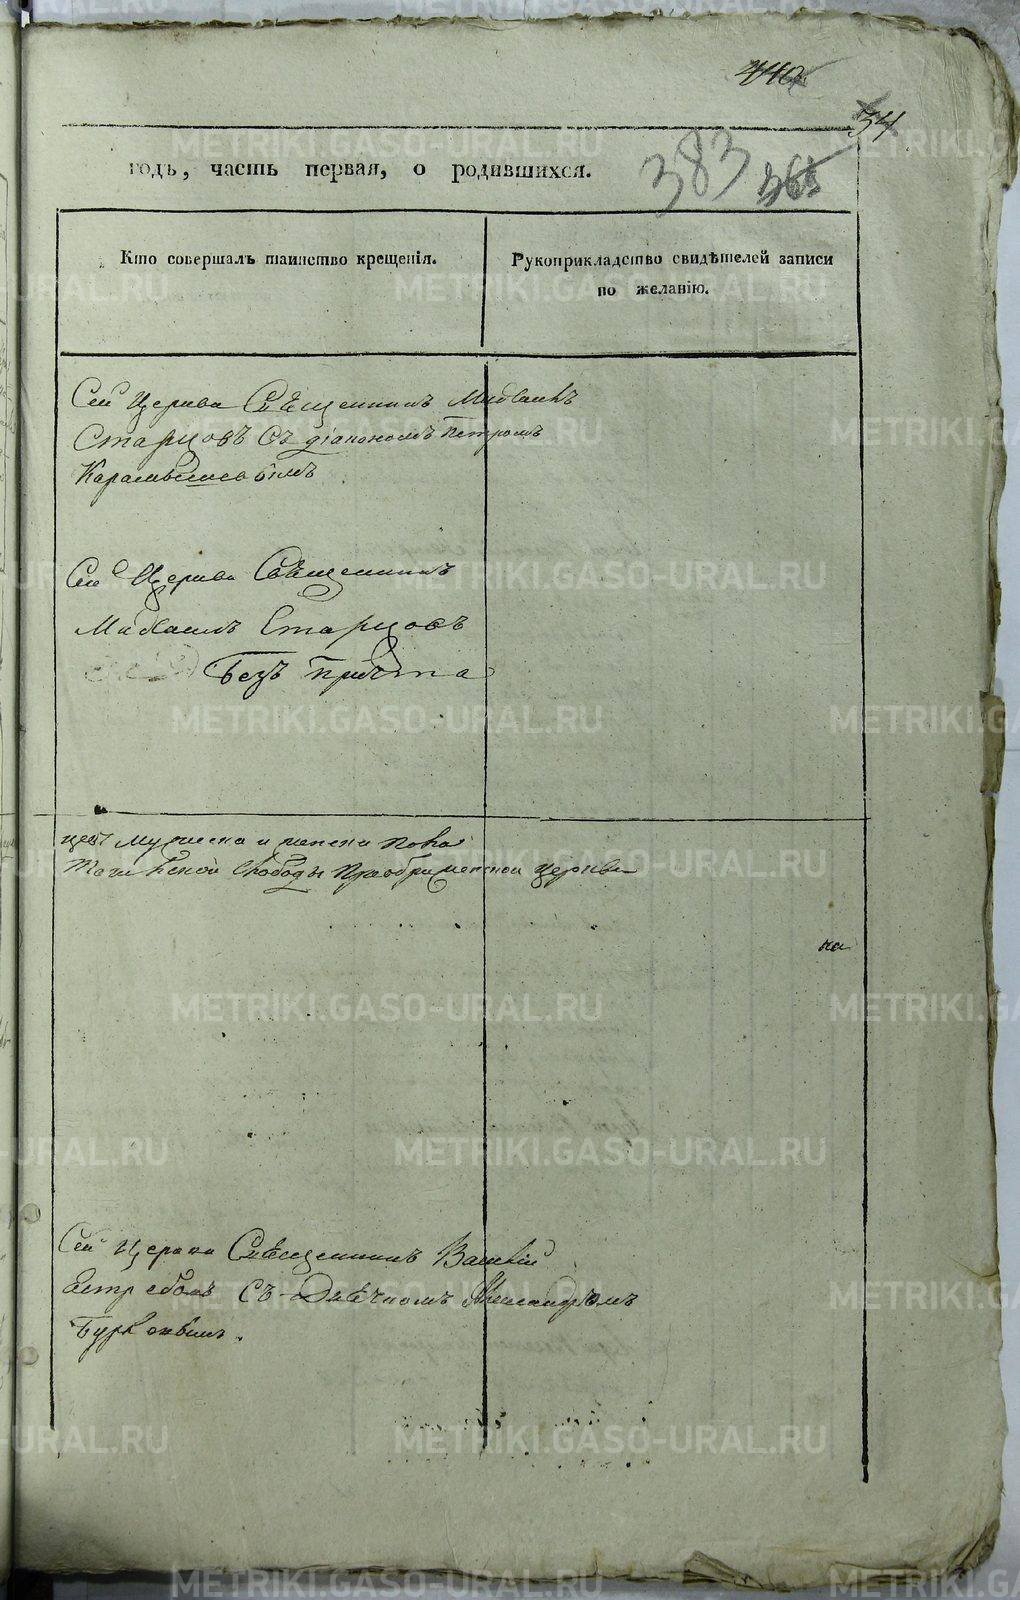 440
34
годъ, часть первая, о родившихся.
383
365
Кто совершалъ таинство крещенія.
Рукоприкладство свидѣтелей записи
по желанію.
Сей Церкви Священникъ Михаилъ
Старцовъ Съ діакономъ Петромъ
Сей Церкви Священникъ
Михаилъ Старцовъ
Безъ Причта
мужеска и женска пола
Слободы Преображенской Церкви
на
Сей Церкви Священникъ Василій
Ястребовъ Съ Дьячкомъ Александромъ
METRIKI.GASO-URAL.RU